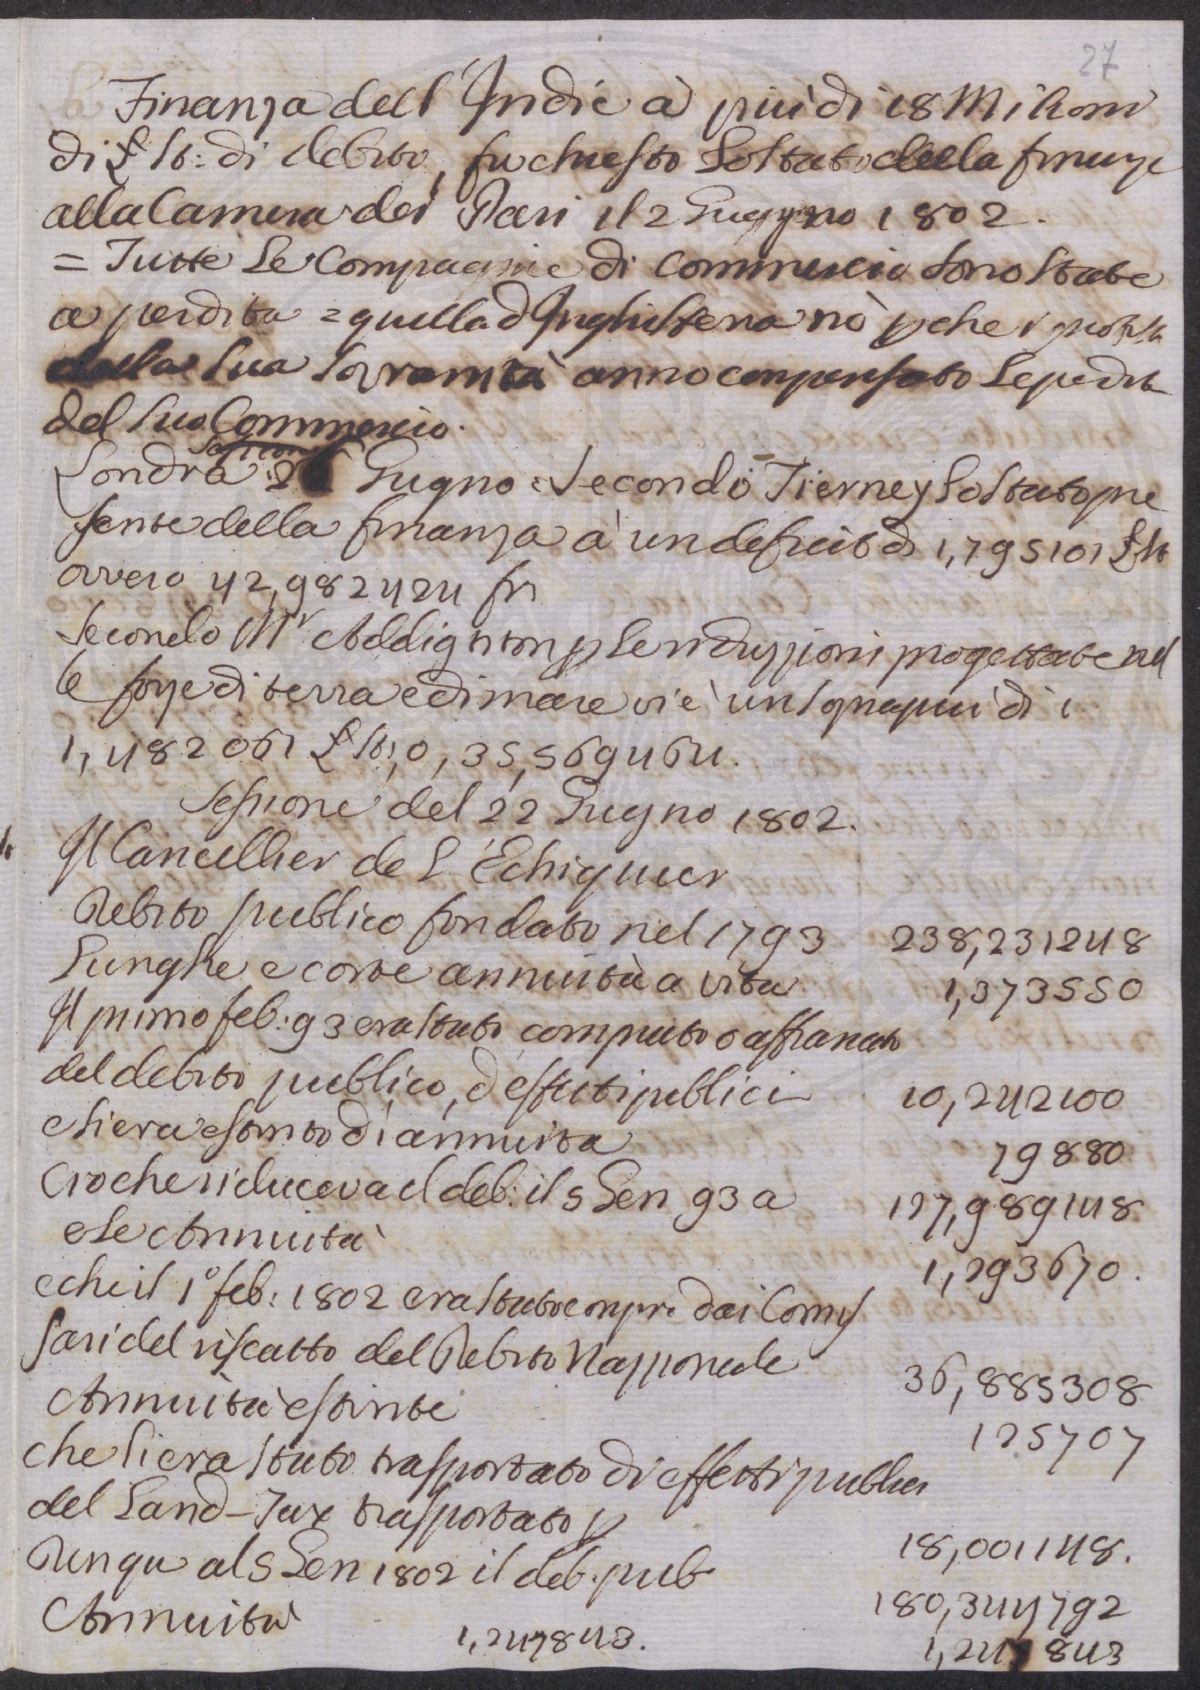 27
Finanza dell' Indie à piu di 18 Milioni
di £ St: di debito, fu chiesto lo Stato della finanze
alla Camera dei Pari il 2 Giugno 1802.
= Tutte le Compagnie di Commercio sono state
a perdita = quella d Inghilterra nò p che i profitti
della sua sovranità anno compensato le perdite
del suo Commercio.
Londra 2 Giugno = Secondo Tierney lo Stato pre
sente della finanza à un deficit di 1,795101 £ St
ovvero 42,982424 fr
Secondo Mr Addington p le riduzzioni progettate nel
le forze di terra e di mare vi è un sopra piu di 1
1,482061 £ St, o, 35,569464.
Sessione del 22 Giugno 1802.
Il Cancellier de L'Echiquier
Debito publico fondato nel 1793 238,231248
Lunghe e corte annuità a vita 1,373550
Il primo feb: 93 era stato comprato o affrancato
del debito publico, d'effetti publici 10,242100
e si era estinto di annuita 79880
Cio che riduceva il deb: il 5 Gen 93 a 127,989148
e le Annuità 1,293670.
e che il 1º feb: 1802 era stato compr. dai Comis
sari del riscatto del Debito Nazzionale 36,885308
Annuità estinte 125707
che si era stato trasportato di effetti publici
del Land-Tax trasportato p 18,001148.
Dunque al 5 Gen 1802 il deb. pub 180,344792
Annuità 1,247843. 1,247843